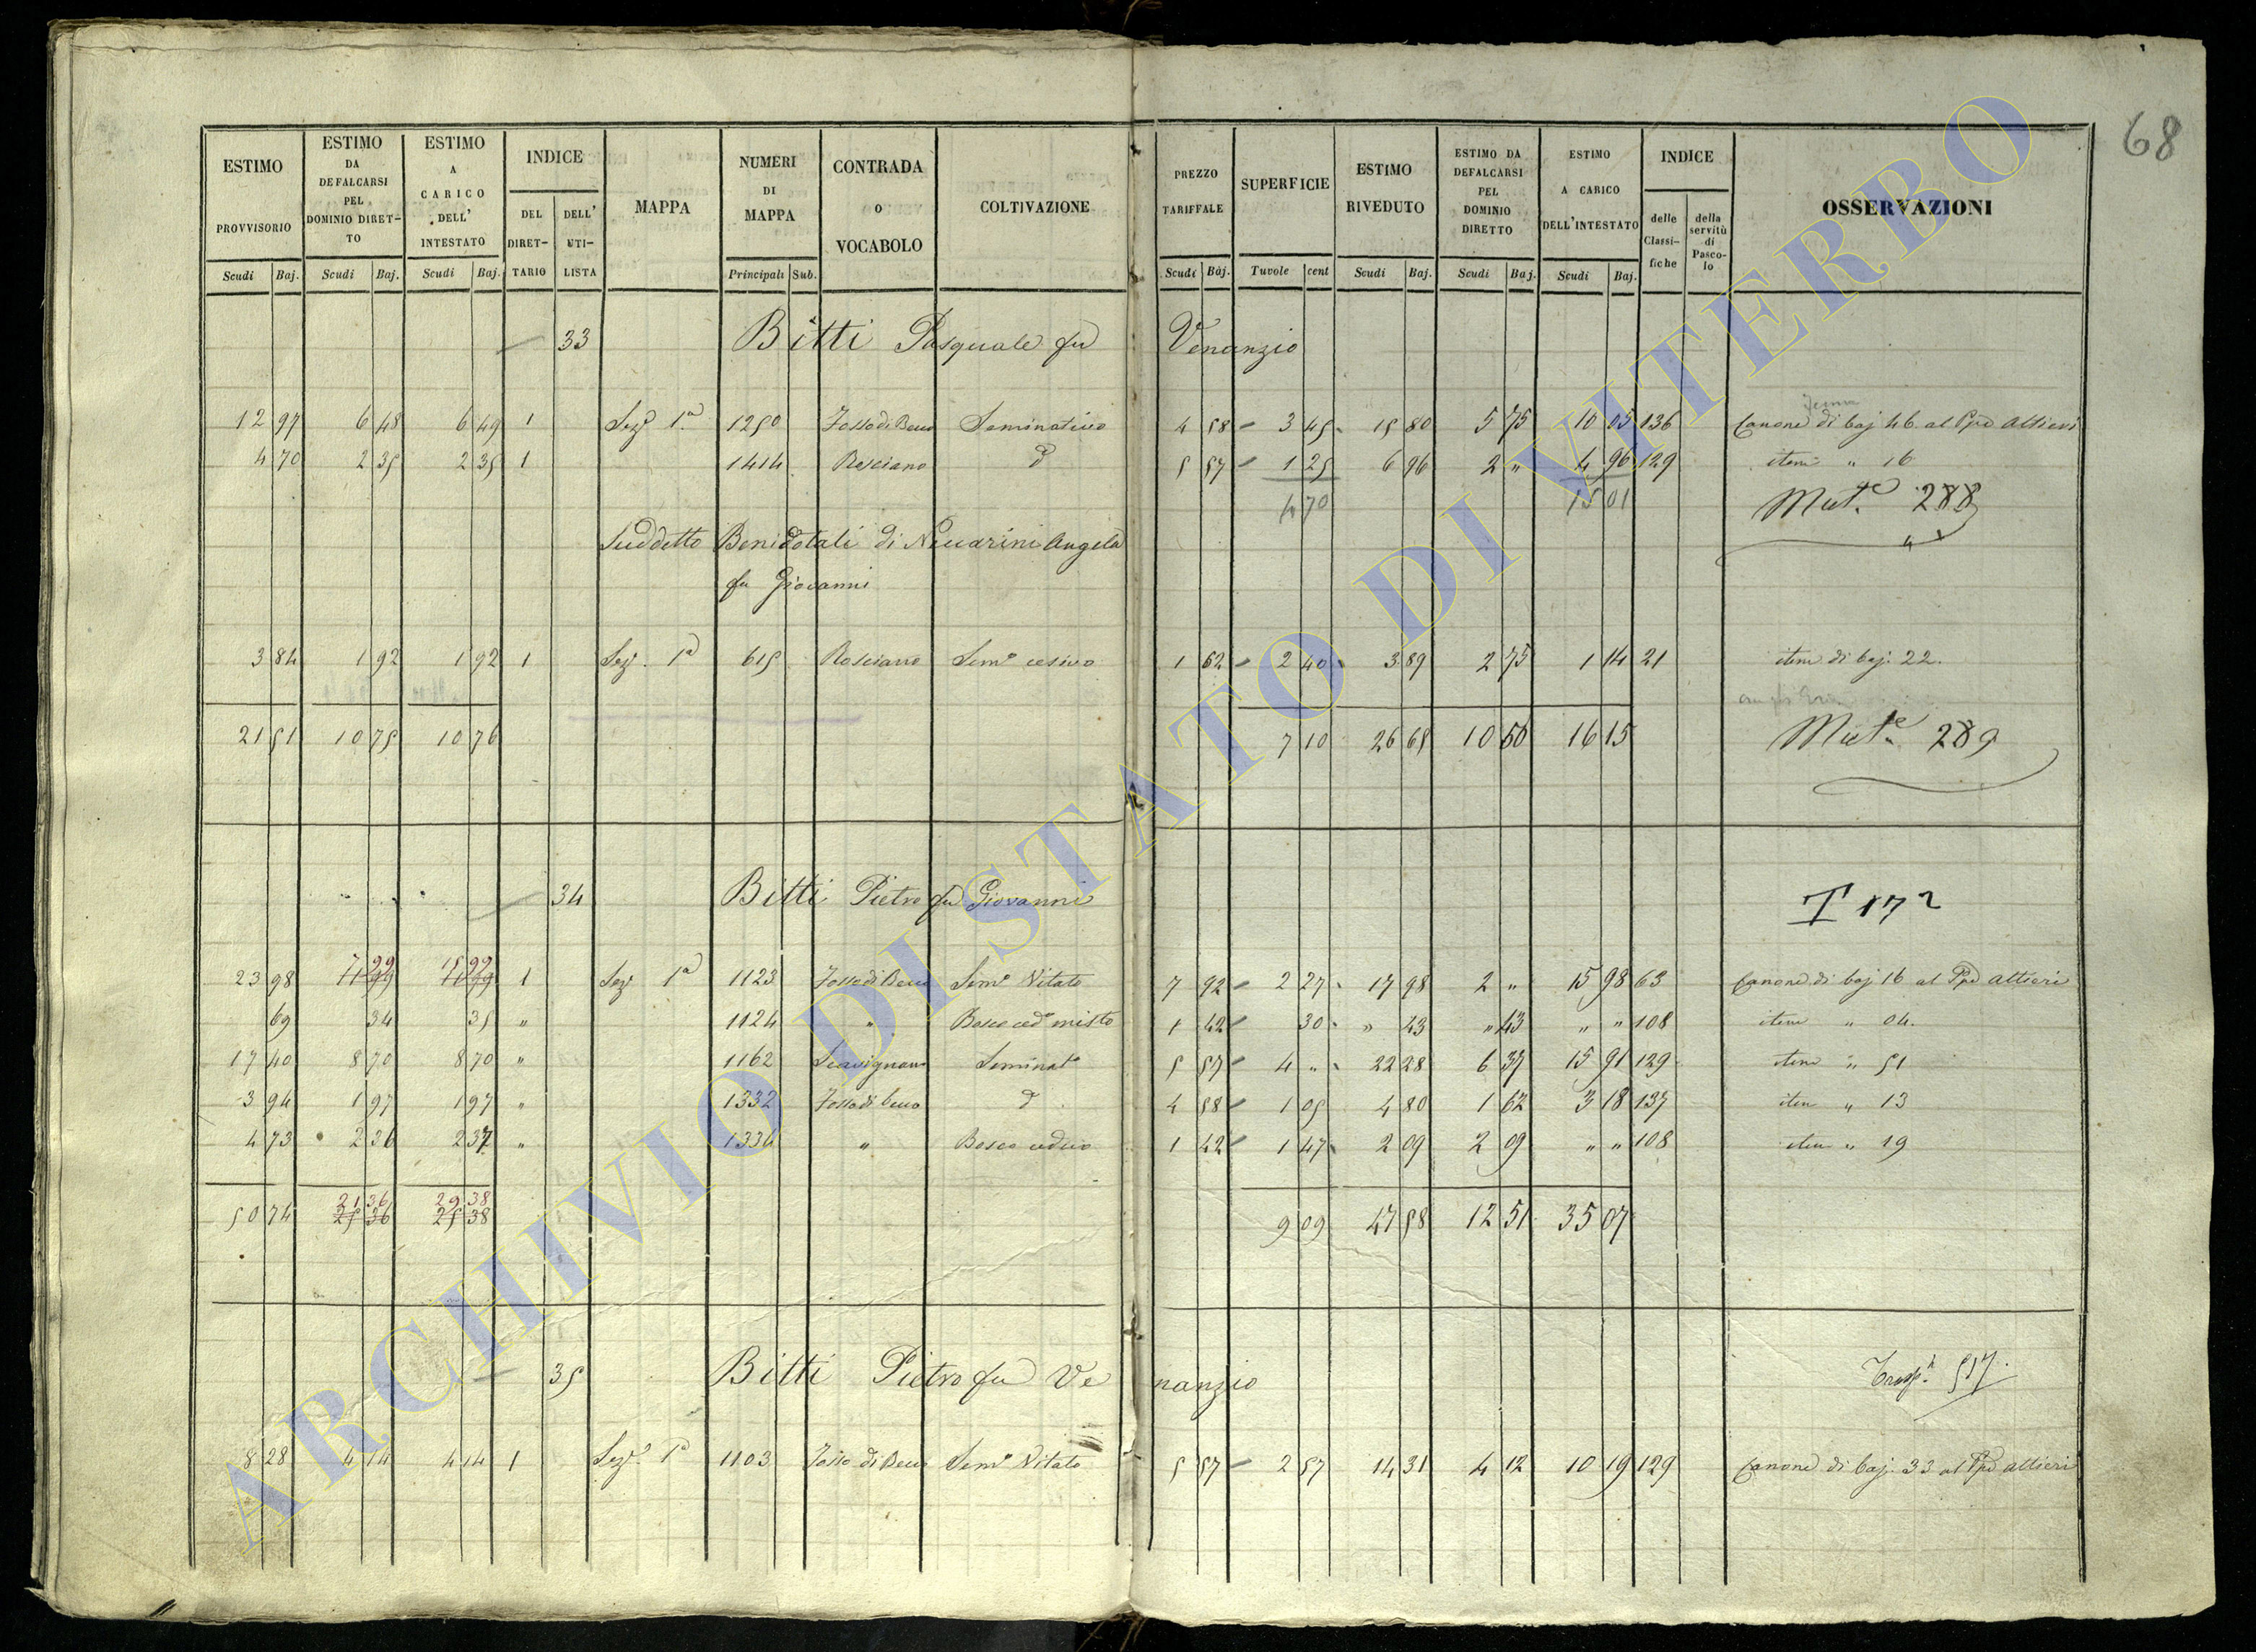 68
ESTIMO PROVVISORIO Scudi Baj.
ESTIMO DA DEFALCARSI PEL DOMINIO DIRET-TO Scudi Baj.
ESTIMO A CARICO DELL' INTESTATO Scudi Baj.
INDICE DEL DIRET-TARIO DELL' UTI-LISTA
MAPPA
NUMERI DI MAPPA Principali Sub.
CONTRADA O VOCABOLO
COLTIVAZIONE
PREZZO TARIFFALE Scudi Baj.
SUPERFICIE Tavole cent
ESTIMO RIVEDUTO Scudi Baj.
ESTIMO DA DEFALCARSI PEL DOMINIO DIRETTO Scudi Baj.
ESTIMO A CARICO DELL'INTESTATO Scudi Baj.
INDICE delle Classi-fiche della servitù di Pasco-lo
OSSERVAZIONI
33 Bitti Pasquale fu Venanzio
12 97 6 48 6 49 1 Sezē 1ª 1250 Fosso di Becco Seminativo 4 58 3 45 15 80 5 75 10 05 136 Canone di baj 46 al Ppe Altieri
4 70 2 35 2 35 1 1414 Rosciano d° 5 57 1 25 6 96 2 " 4 96 129 item " 16
4 70 15 01 Mutª 288
Suddetto Beni dotali di Angela
fu Giovanni
3 84 1 92 1 92 1 Sez. 1ª 615 Rosciano Sem° cesivo 1 62 2 40 3 89 2 75 1 14 21 item di baj. 22.
21 51 10 75 10 76 7 10 26 65 10 50 16 15 Mutª 289
34 Bitti Pietro fu Giovanni T 172
7 99 15 99
23 98 11 99 11 99 1 Sez 1ª 1123 Fosso di Becco Sem° Vitato 7 92 2 27 17 98 2 " 15 98 63 Canone di baj 16 al Ppe Altieri
69 34 35 " 1124 " Bosco ced° misto 1 42 30 " 43 " 43 " " 108 item " 04.
17 40 8 70 8 70 " 1162 Seminat° 5 57 4 " 22 28 6 37 15 91 129 item " 51
3 94 1 97 1 97 " 1332 Fosso di becco d° 4 58 1 05 4 80 1 62 3 18 137 item " 13
4 73 2 36 2 37 " 1334 " Bosco ceduo 1 42 1 47 2 09 2 09 " " 108 item " 19
21 36 29 38
50 74 25 36 25 38 9 09 47 58 12 51 35 07
35 Bitti Pietro fu Venanzio Trasp.ª 517.
8 28 4 14 4 14 1 Sezē 1ª 1103 Fosso di Becco Sem° Vitato 5 57 2 57 14 31 4 12 10 19 129 Canone di baj. 33 al Ppe Altieri
ARCHIVIO DI STATO DI VITERBO